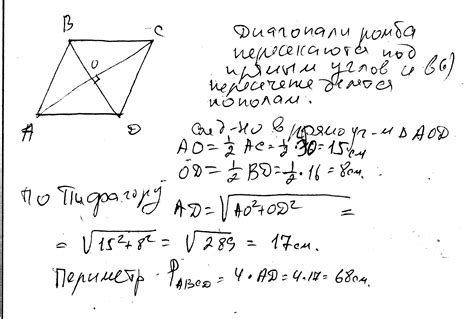 B
C
O
A
D
Диагонали ромба
пересекаются под
прямым углов и в(б)
пересечении делятся
пополам.
след-но в прямоуг-м ΔAOD
AO=½ AC=½·30=15см
OD=½ BD=½·16=8см.
По Пифагору AD=√AO²+OD² =
= √15²+8² = √289 = 17см.
Периметр P ABCD = 4·AD=4·17=68см.